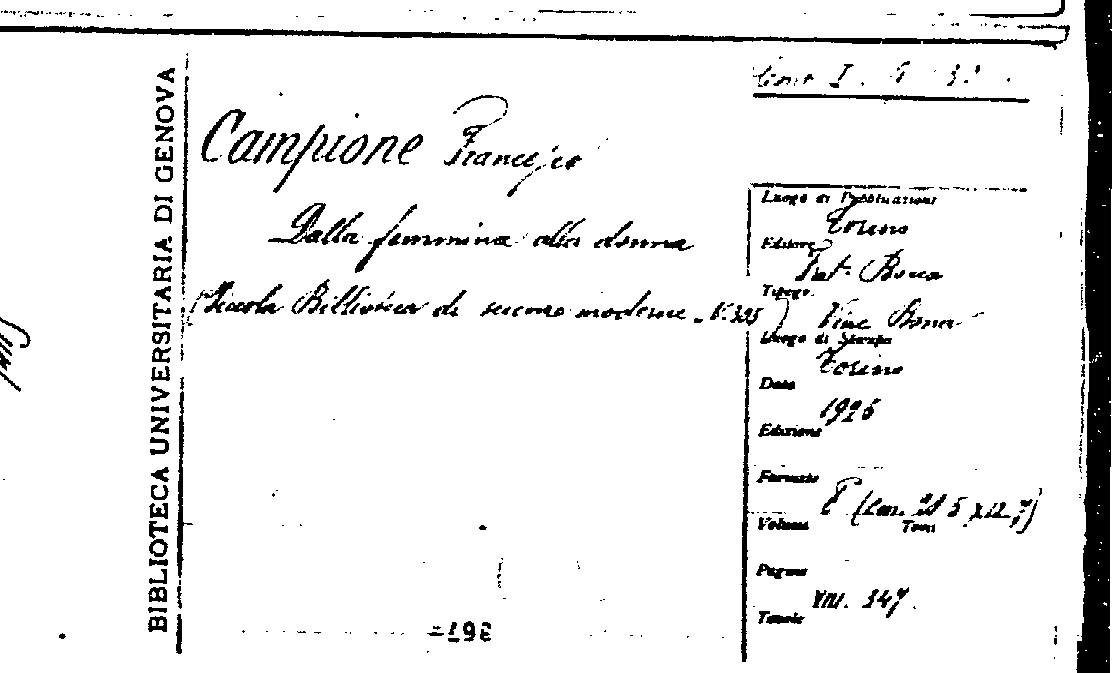 BIBLIOTECA UNIVERSITARIA DI GENOVA
Campione Francesco
Dalla femmina alla donna
(Piccola Biblioteca di scienze moderne - N. 325)
I.
Luogo di Pubblicazione
Torino
Editore
Frat. Bocca
Tipogr.
Vinc. Bona
Luogo di Stampa
Torino
Data
1926
Edizione
Formato
8 (cm.
Volume
Tomi
Pagine
VIII. 347.
Tavole